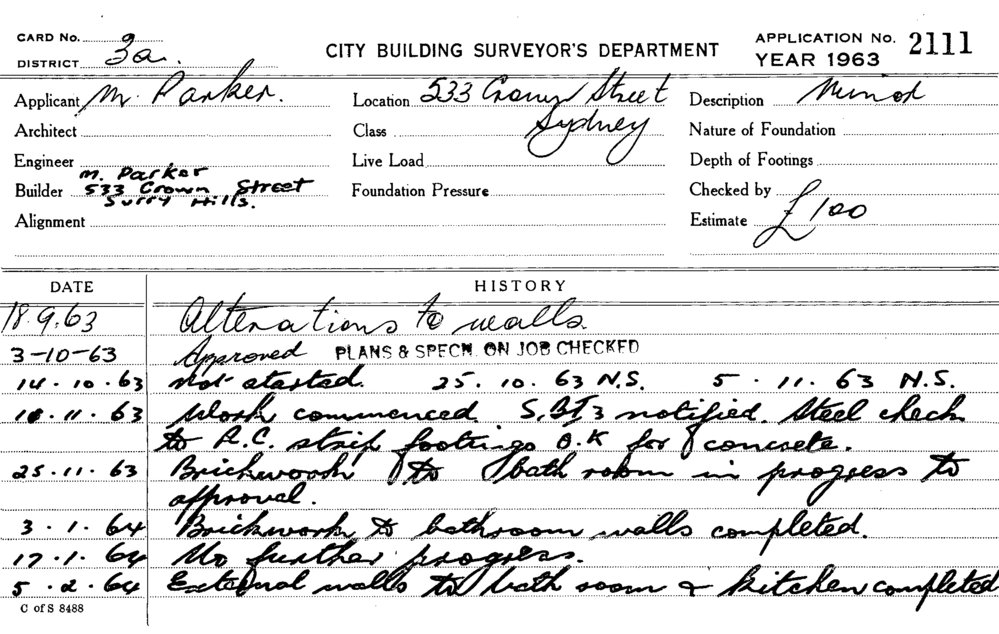 CARD No.
DISTRICT 3a.
CITY BUILDING SURVEYOR'S DEPARTMENT
APPLICATION No. 2111
YEAR 1963
Applicant M. Parker.
Location 533 Crown Street
Sydney
Description Minor
Architect
Class
Nature of Foundation
Engineer
Live Load
Depth of Footings
Builder M. Parker
533 Crown Street
Surry Hills.
Foundation Pressure
Checked by
Alignment
Estimate £100
DATE HISTORY
18.9.63 Alterations to walls.
3-10-63 Approved PLANS & SPECN. ON JOB CHECKED
14.10.63 Not started. 25.10.63 N.S. 5.11.63 N.S.
18.11.63 Work commenced. notified. Steel check
to R.C. strip footings O.K for concrete.
25.11.63 Brickwork to bath room in progress to
approval.
3.1.64 Brickwork to bathroom walls completed.
17.1.64 No further progress.
5.2.64 External walls to bath room & kitchen completed
C of S 8488